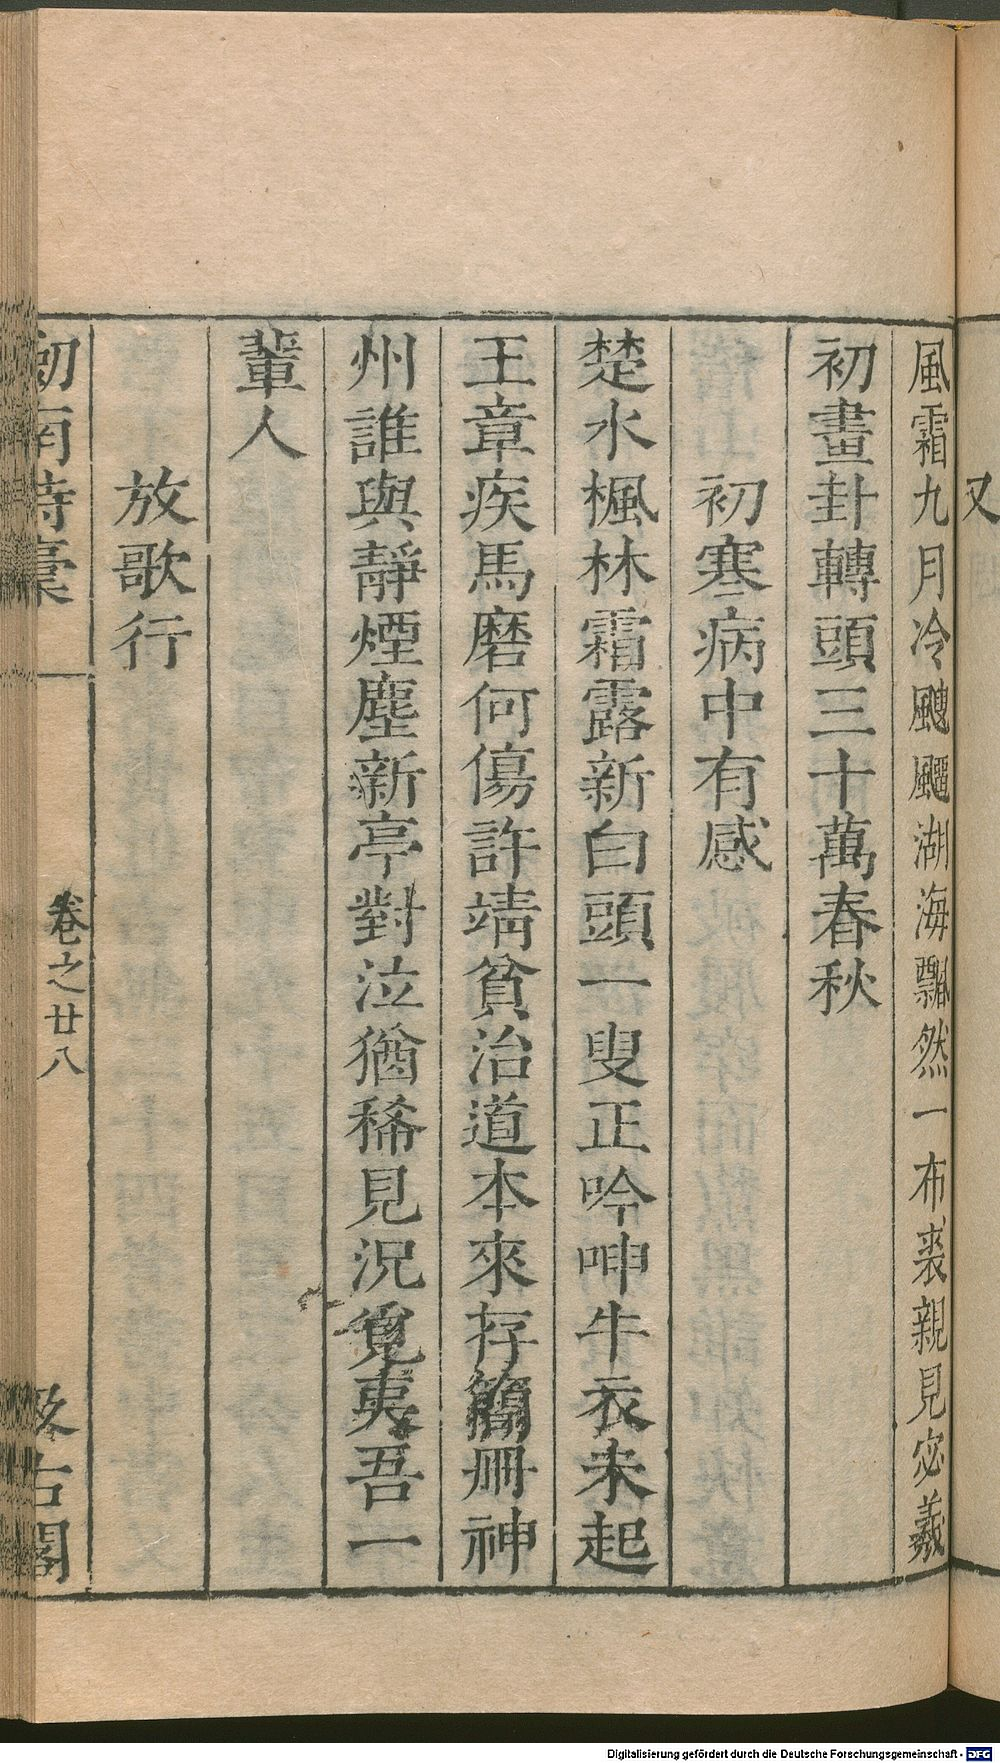 又
風霜九月冷颼飀湖海飄然一布裘親見宓羲
初畫卦轉頭三十萬春秋
初寒病中有感
楚水楓林霜露新白頭一叟正吟呻牛衣未起
王章疾馬磨何傷許靖貧治道本來存簡冊神
州誰與靜煙塵新亭對泣猶稀見況覓夷吾一
輩人
放歌行
劒南詩稾
卷之廿八
汲古閣
Digitalisierung gefördert durch die Deutsche Forschungsgemeinschaft - DFG